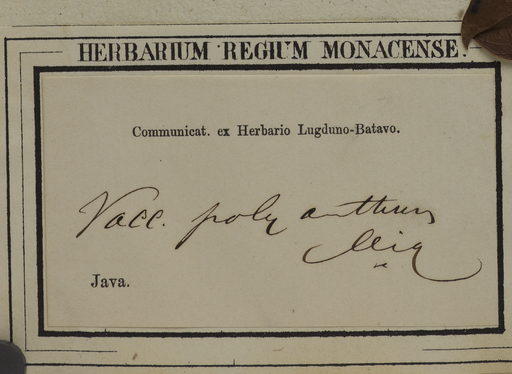 HERBARIUM REGIUM MONACENSE.
Communicat. ex Herbario Lugduno-Batavo.
Vacc. polyanthum
Miq
Java.